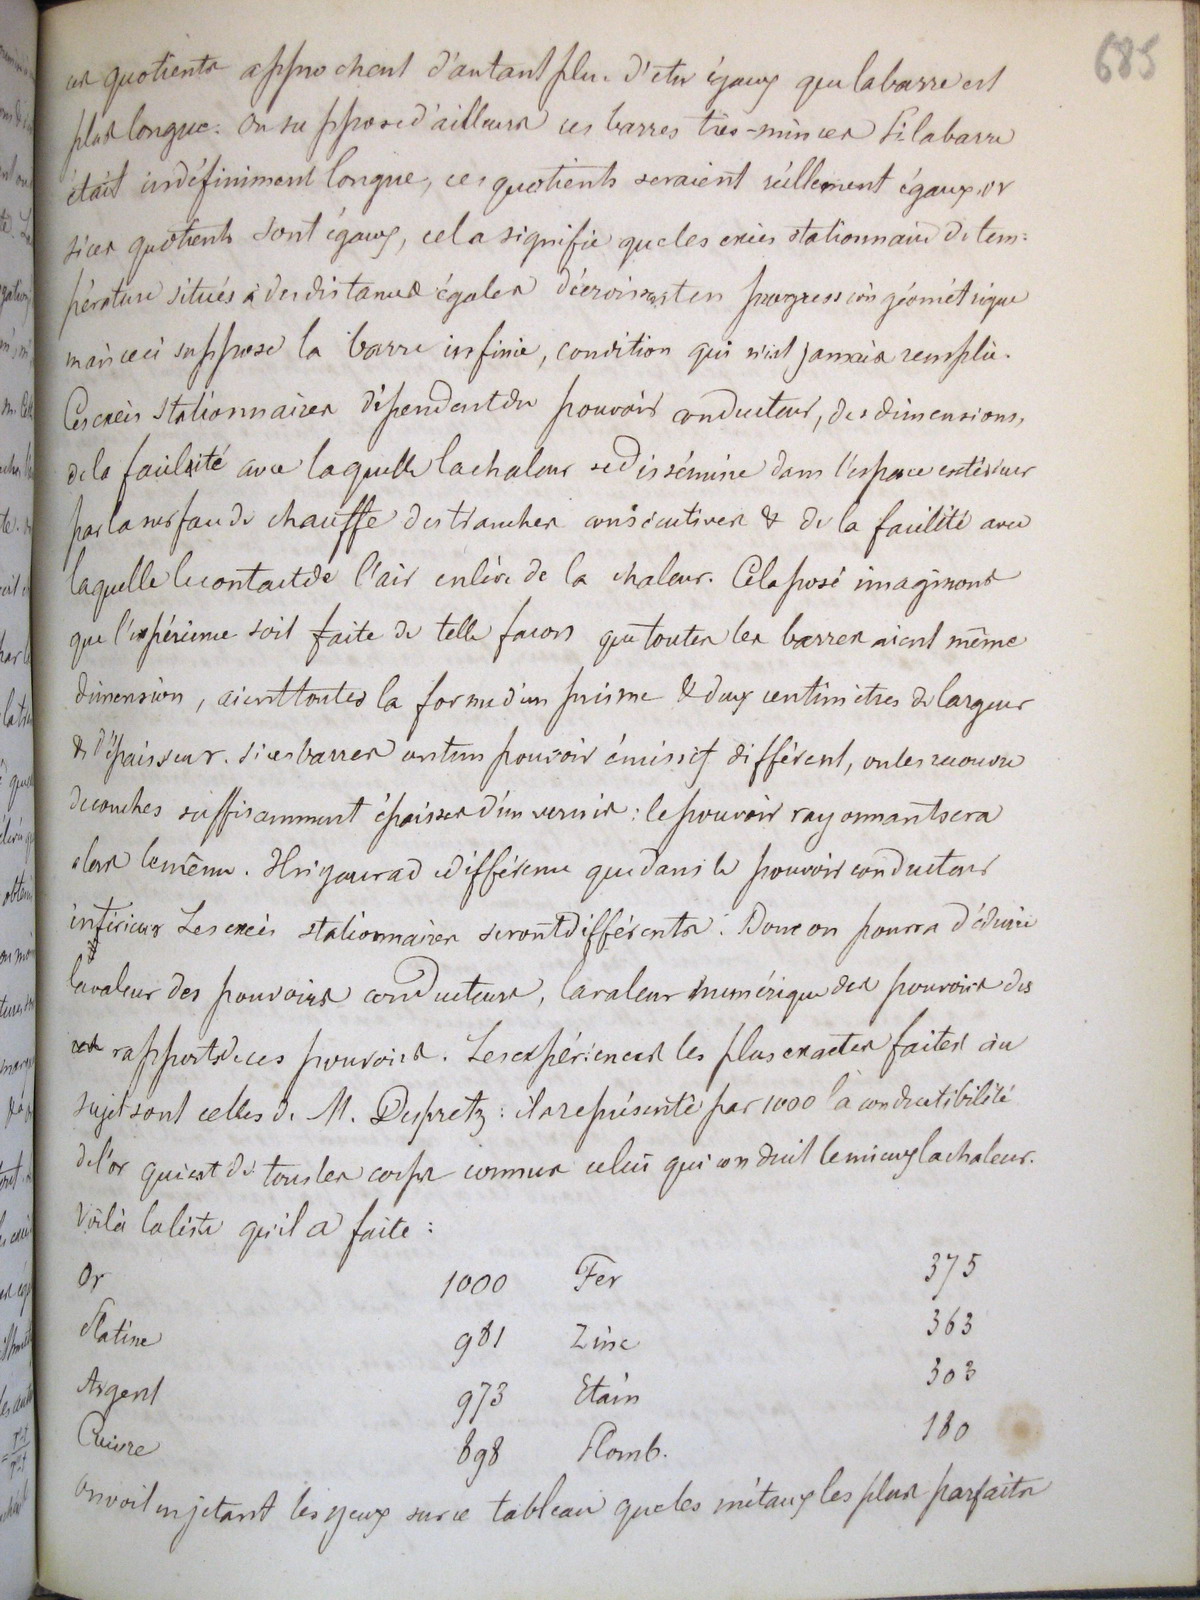 685
ces quotients approchent d'autant plus d'être égaux que la barre est
plus longue: on suppose d'ailleurs ces barres très-minces Si la barre
était indéfiniment longue, ces quotients seraient réellement égaux. or
si ces quotients sont égaux, cela signifie que les excès stationnaires de tem-
pérature situés à des distances égales décroissent en progression géométrique
mais ceci suppose la barre infinie, condition qui n'est jamais remplie.
Ces excès stationnaires dépendent du pouvoir conducteur, des dimensions,
de la facilité avec laquelle la chaleur se dissémine dans l'espace extérieur
par la surface de chauffe des tranches consécutives & de la facilité avec
laquelle le contact de l'air enlève de la chaleur. Cela posé imaginons
que l'expérience soit faite de telle facon que toutes les barres aient même
dimension, aient toutes la forme d'un prisme de deux centimètres de largeur
& d'épaisseur. si ces barres ont un pouvoir émissif différent, on les recouvre
de couches suffisamment épaisses d'un vernis: le pouvoir rayonnant sera
alors le même. Il n'y aura de différence que dans le pouvoir conducteur
intérieur Les excès stationnaires seront différents. Donc on pourra déduire
la valeur des pouvoirs conducteurs, la valeur numérique des pouvoirs des
rapports de ces pouvoirs. Les expériences les plus exactes faites à ce
sujet sont celles de M. Despretz: il a représenté par 1000 la conductibilité
de l'or qui est de tous les corps connus celui qui conduit le mieux la chaleur.
Voilà la liste qu'il a faite:
Or 1000 Fer 375
Platine 981 Zinc 363
Argent 973 Etain 303
Cuivre 898 Plomb. 180
on voit en jetant les yeux sur ce tableau que les métaux les plus parfaits